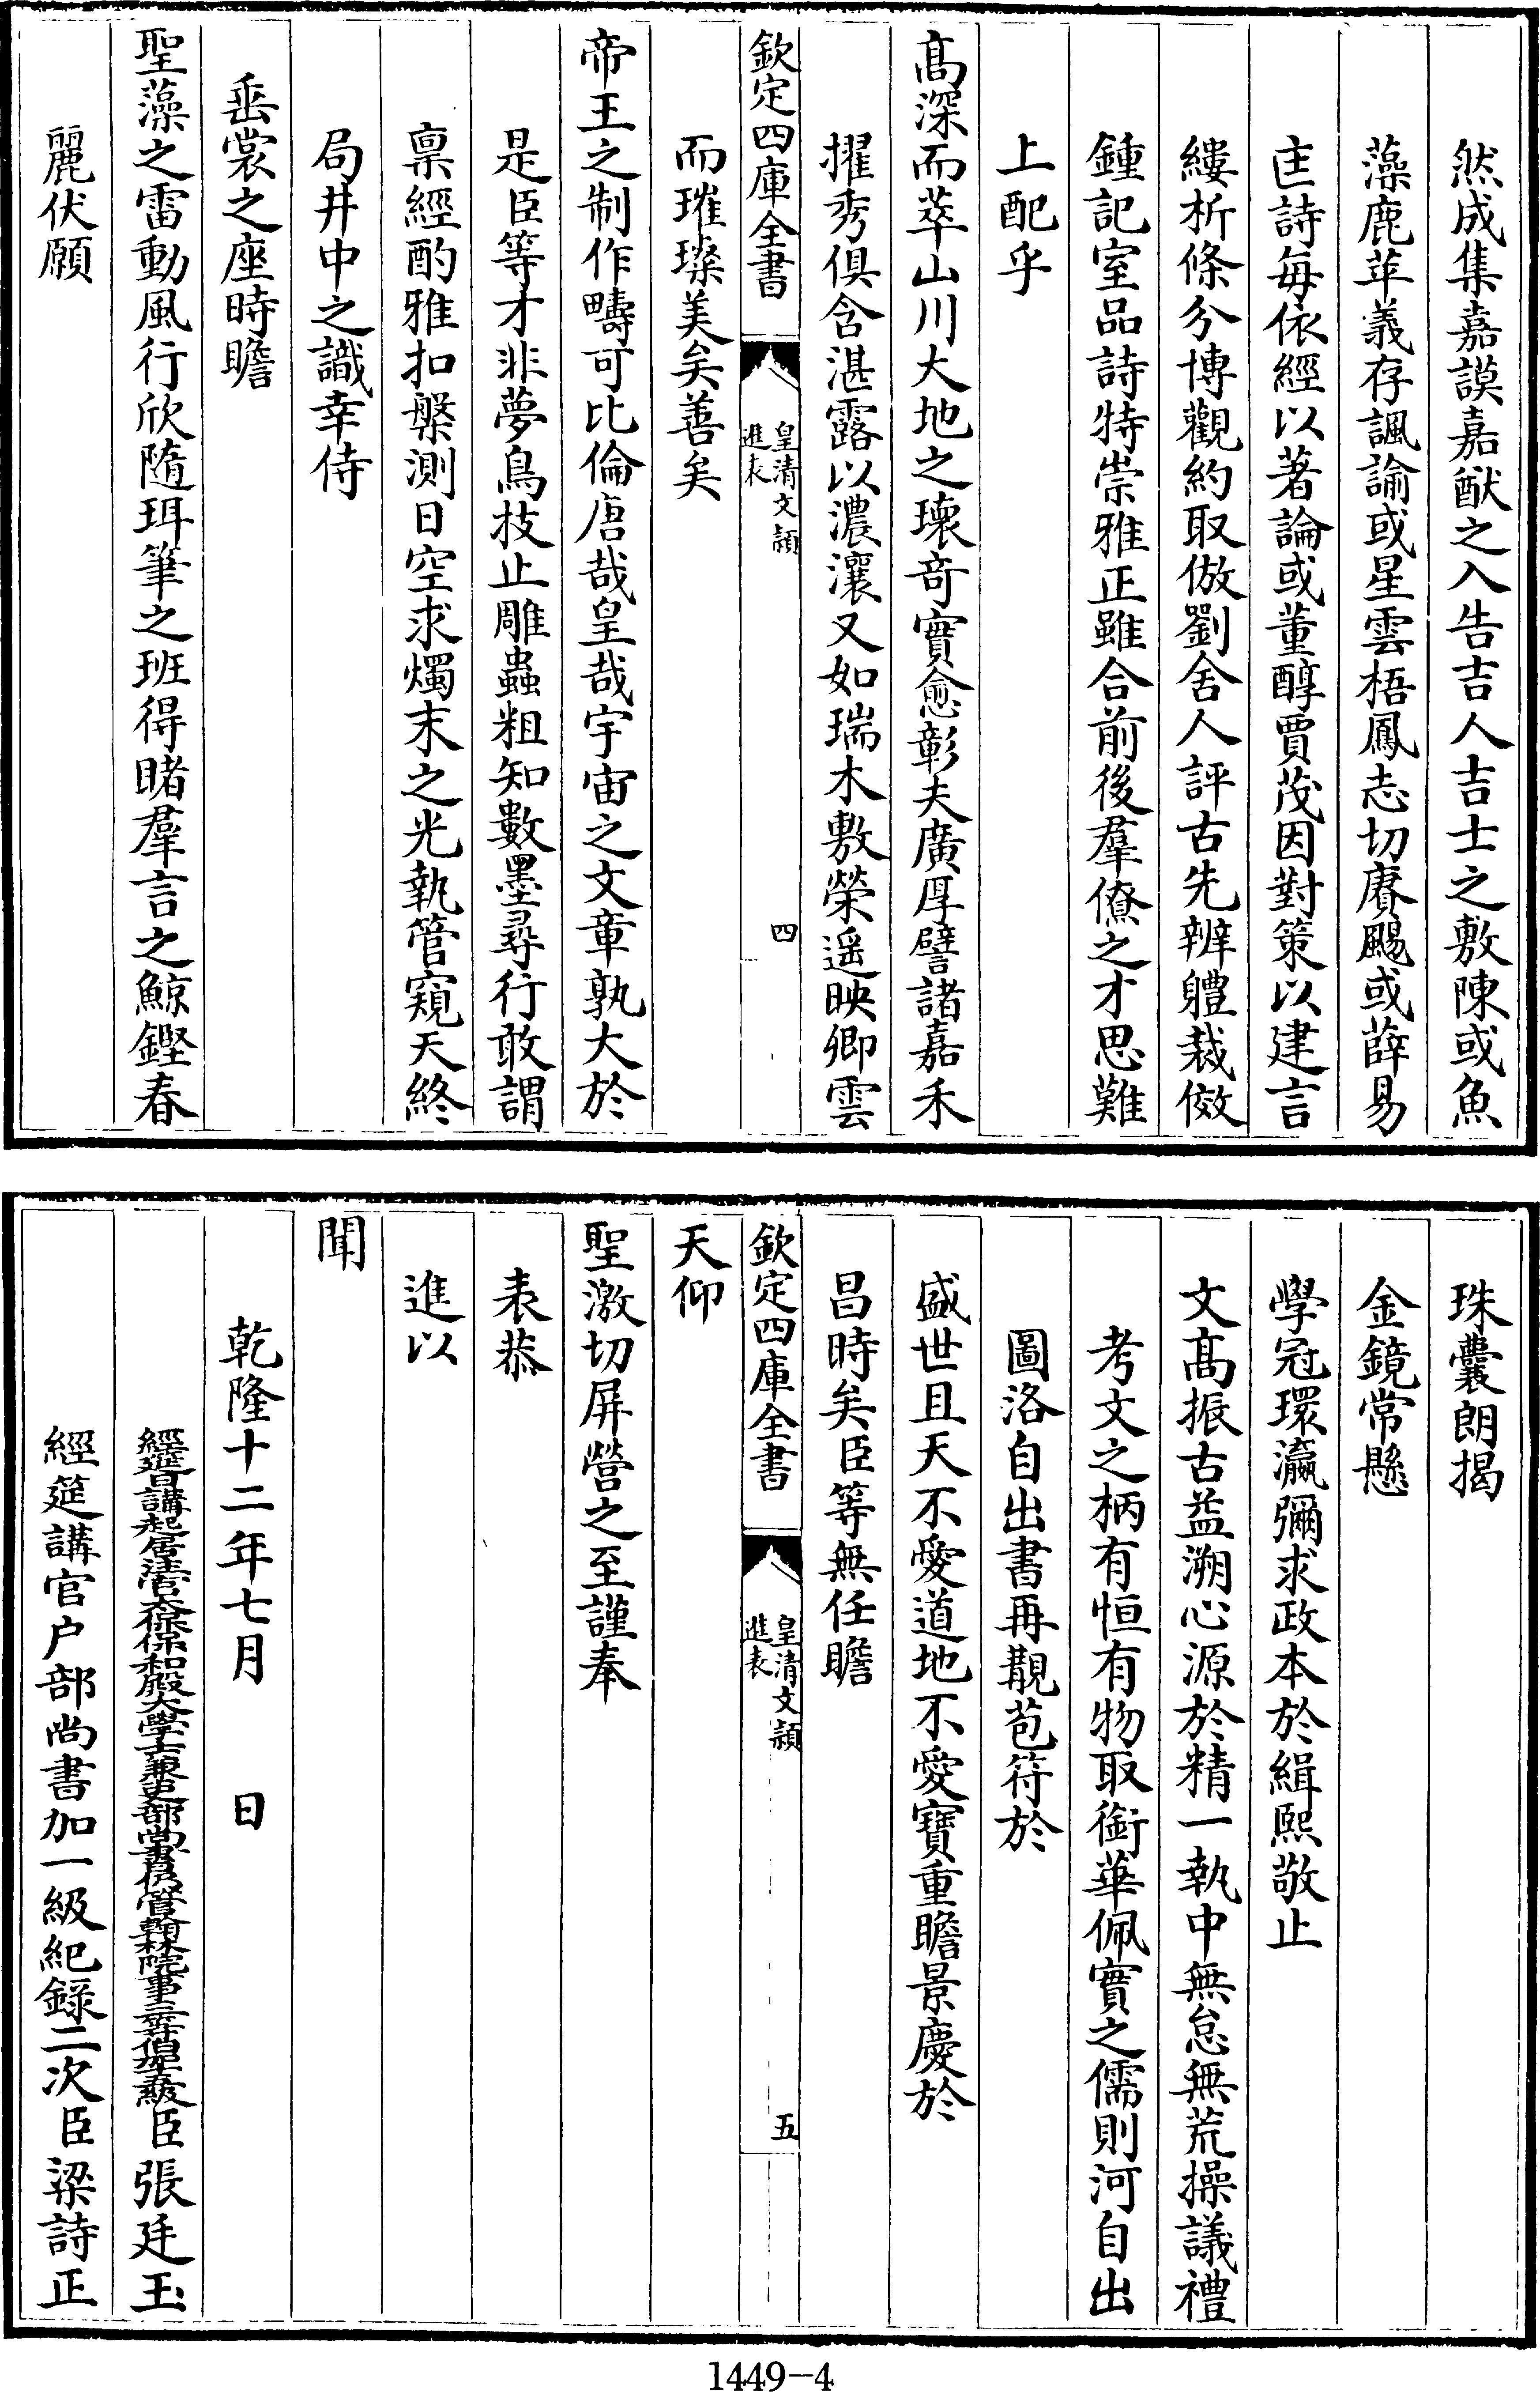 然成集嘉謨嘉猷之入告吉人吉士之敷陳或魚
藻鹿苹義存諷諭或星雲梧鳳志切賡颺或薛易
匡詩每依經以著論或董醇賈茂因對策以建言
縷析條分博觀約取倣劉舍人評古先辨體裁倣
鍾記室品詩特崇雅正雖合前後羣僚之才思難
上配乎
高深而萃山川大地之瓌奇實愈彰夫廣厚譬諸嘉禾
擢秀俱含湛露以濃瀼又如瑞木敷榮遥映卿雲
欽定四庫全書
皇清文穎
進表
四
而璀璨美矣善矣
帝王之制作疇可比倫唐哉皇哉宇宙之文章孰大於
是臣等才非夢鳥技止雕蟲粗知數墨尋行敢謂
稟經酌雅扣槃測日空求燭末之光執管窺天終
局井中之識幸侍
垂裳之座時瞻
聖藻之雷動風行欣隨珥筆之班得睹羣言之鯨鏗春
麗伏願
珠囊朗揭
金鏡常懸
學冠環瀛彌求政本於緝熙敬止
文高振古益溯心源於精一執中無怠無荒操議禮
考文之柄有恒有物取銜華佩實之儒則河自出
圖洛自出書再覩苞符於
盛世且天不愛道地不愛寶重瞻景慶於
昌時矣臣等無任瞻
欽定四庫全書
皇清文穎
進表
五
天仰
聖激切屏營之至謹奉
表恭
進以
聞
乾隆十二年七月　　日
經筵日講起居注官太保保和殿大學士兼吏部尚書仍管翰林院事三等伯加三級臣張廷玉
經筵講官户部尚書加一級紀録二次臣梁詩正
1449-4